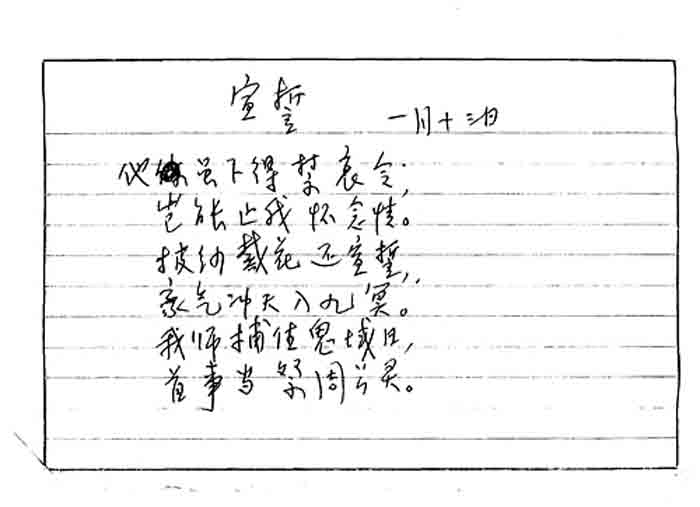 宣誓
一月十三日
他虽下得禁哀令，
岂能止我怀念情。
披纱戴花还宣誓，
豪气冲天入九冥。
我师捕住鬼域日，
首事当祭周公灵。